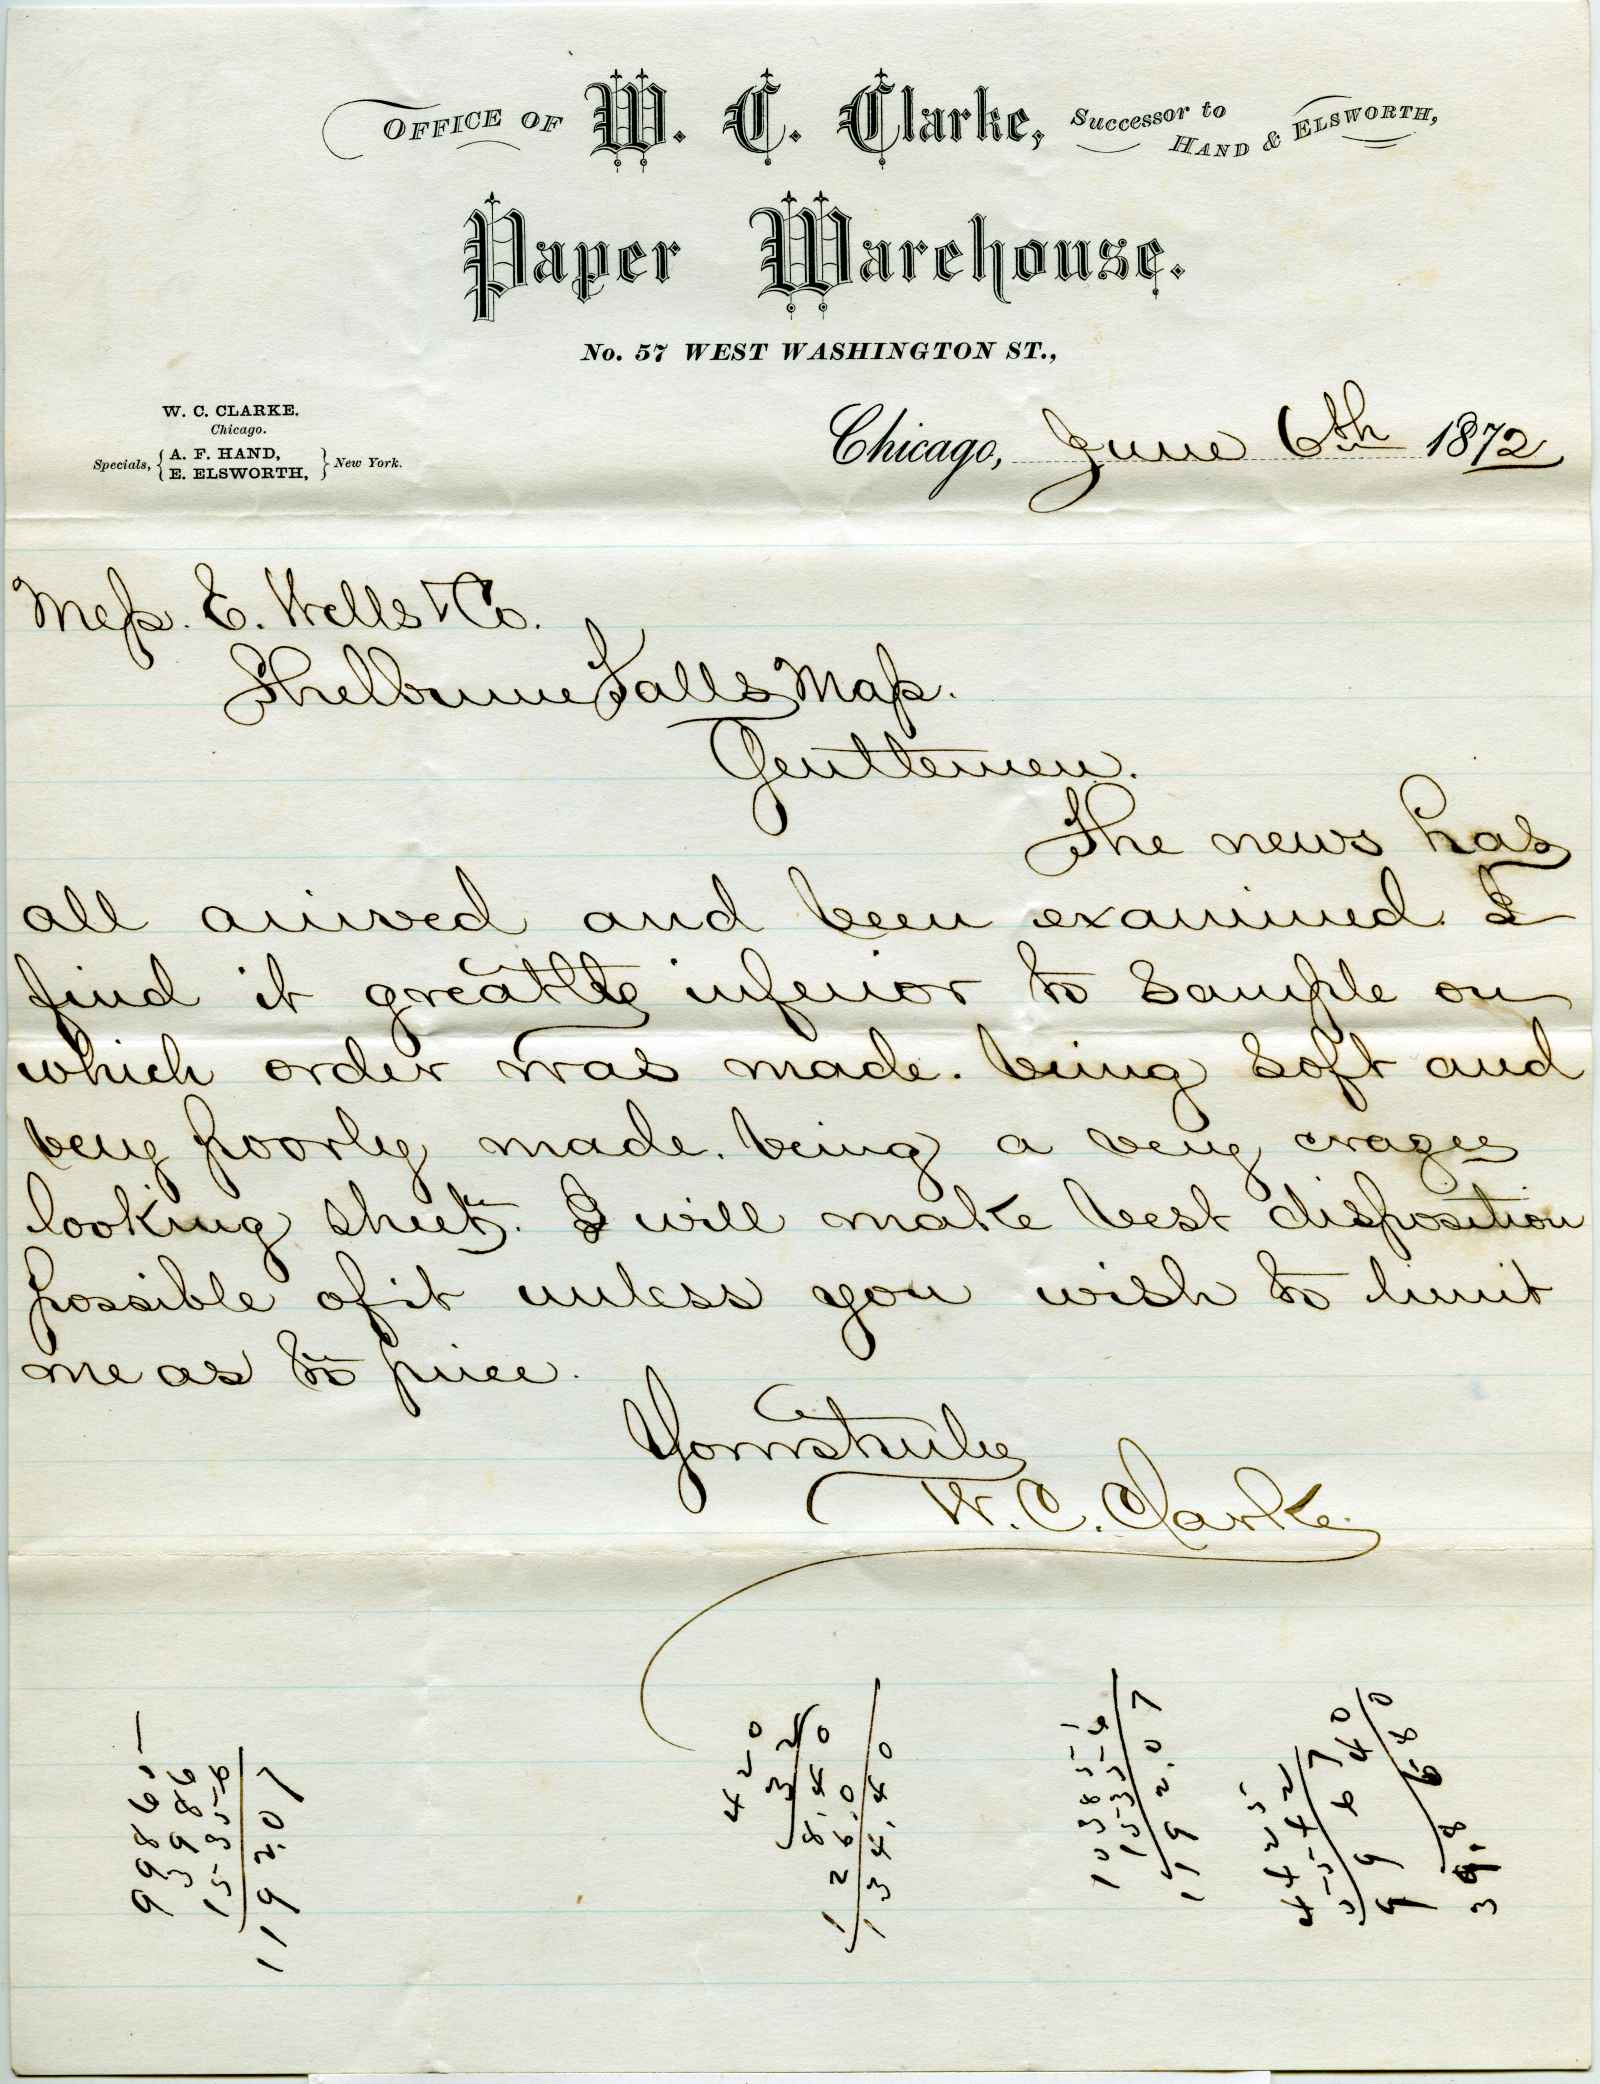 OFFICE OF W. C. Clarke, Successor to HAND & ELSWORTH,
Paper Warehouse.
No. 57 WEST WASHINGTON ST.,
W. C. CLARKE.
Chicago.
Specials, { A. F. HAND, E. ELSWORTH, } New York.
Chicago, June 6th 1872
Mess. E. Wells & Co.
Shelburne Falls Mass.
Gentlemen.
The news has
all arrived and been examined. I
find it greatly inferior to sample on
which order was made. being soft and
very poorly made. being a very
looking sheet. I will make best disposition
possible of it unless you wish to limit
me as to price.
Yours truly
W. C. Clarke
99865
3986
15356
119207
420
32
8.40
126.0
134.40
103851
15356
119207
44225
55442
99667
40